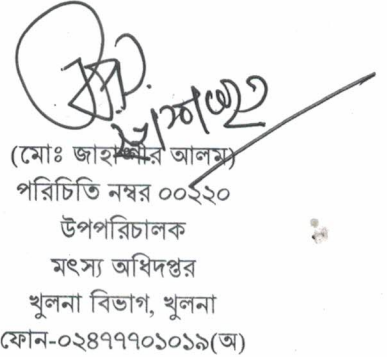 (মোঃ জাহাঙ্গীর আলম)
পরিচিতি নম্বর ০০২২০
উপপরিচালক
মৎস্য অধিদপ্তর
খুলনা বিভাগ, খুলনা
ফোন-০২৪৭৭৭০১০১৯(অ)